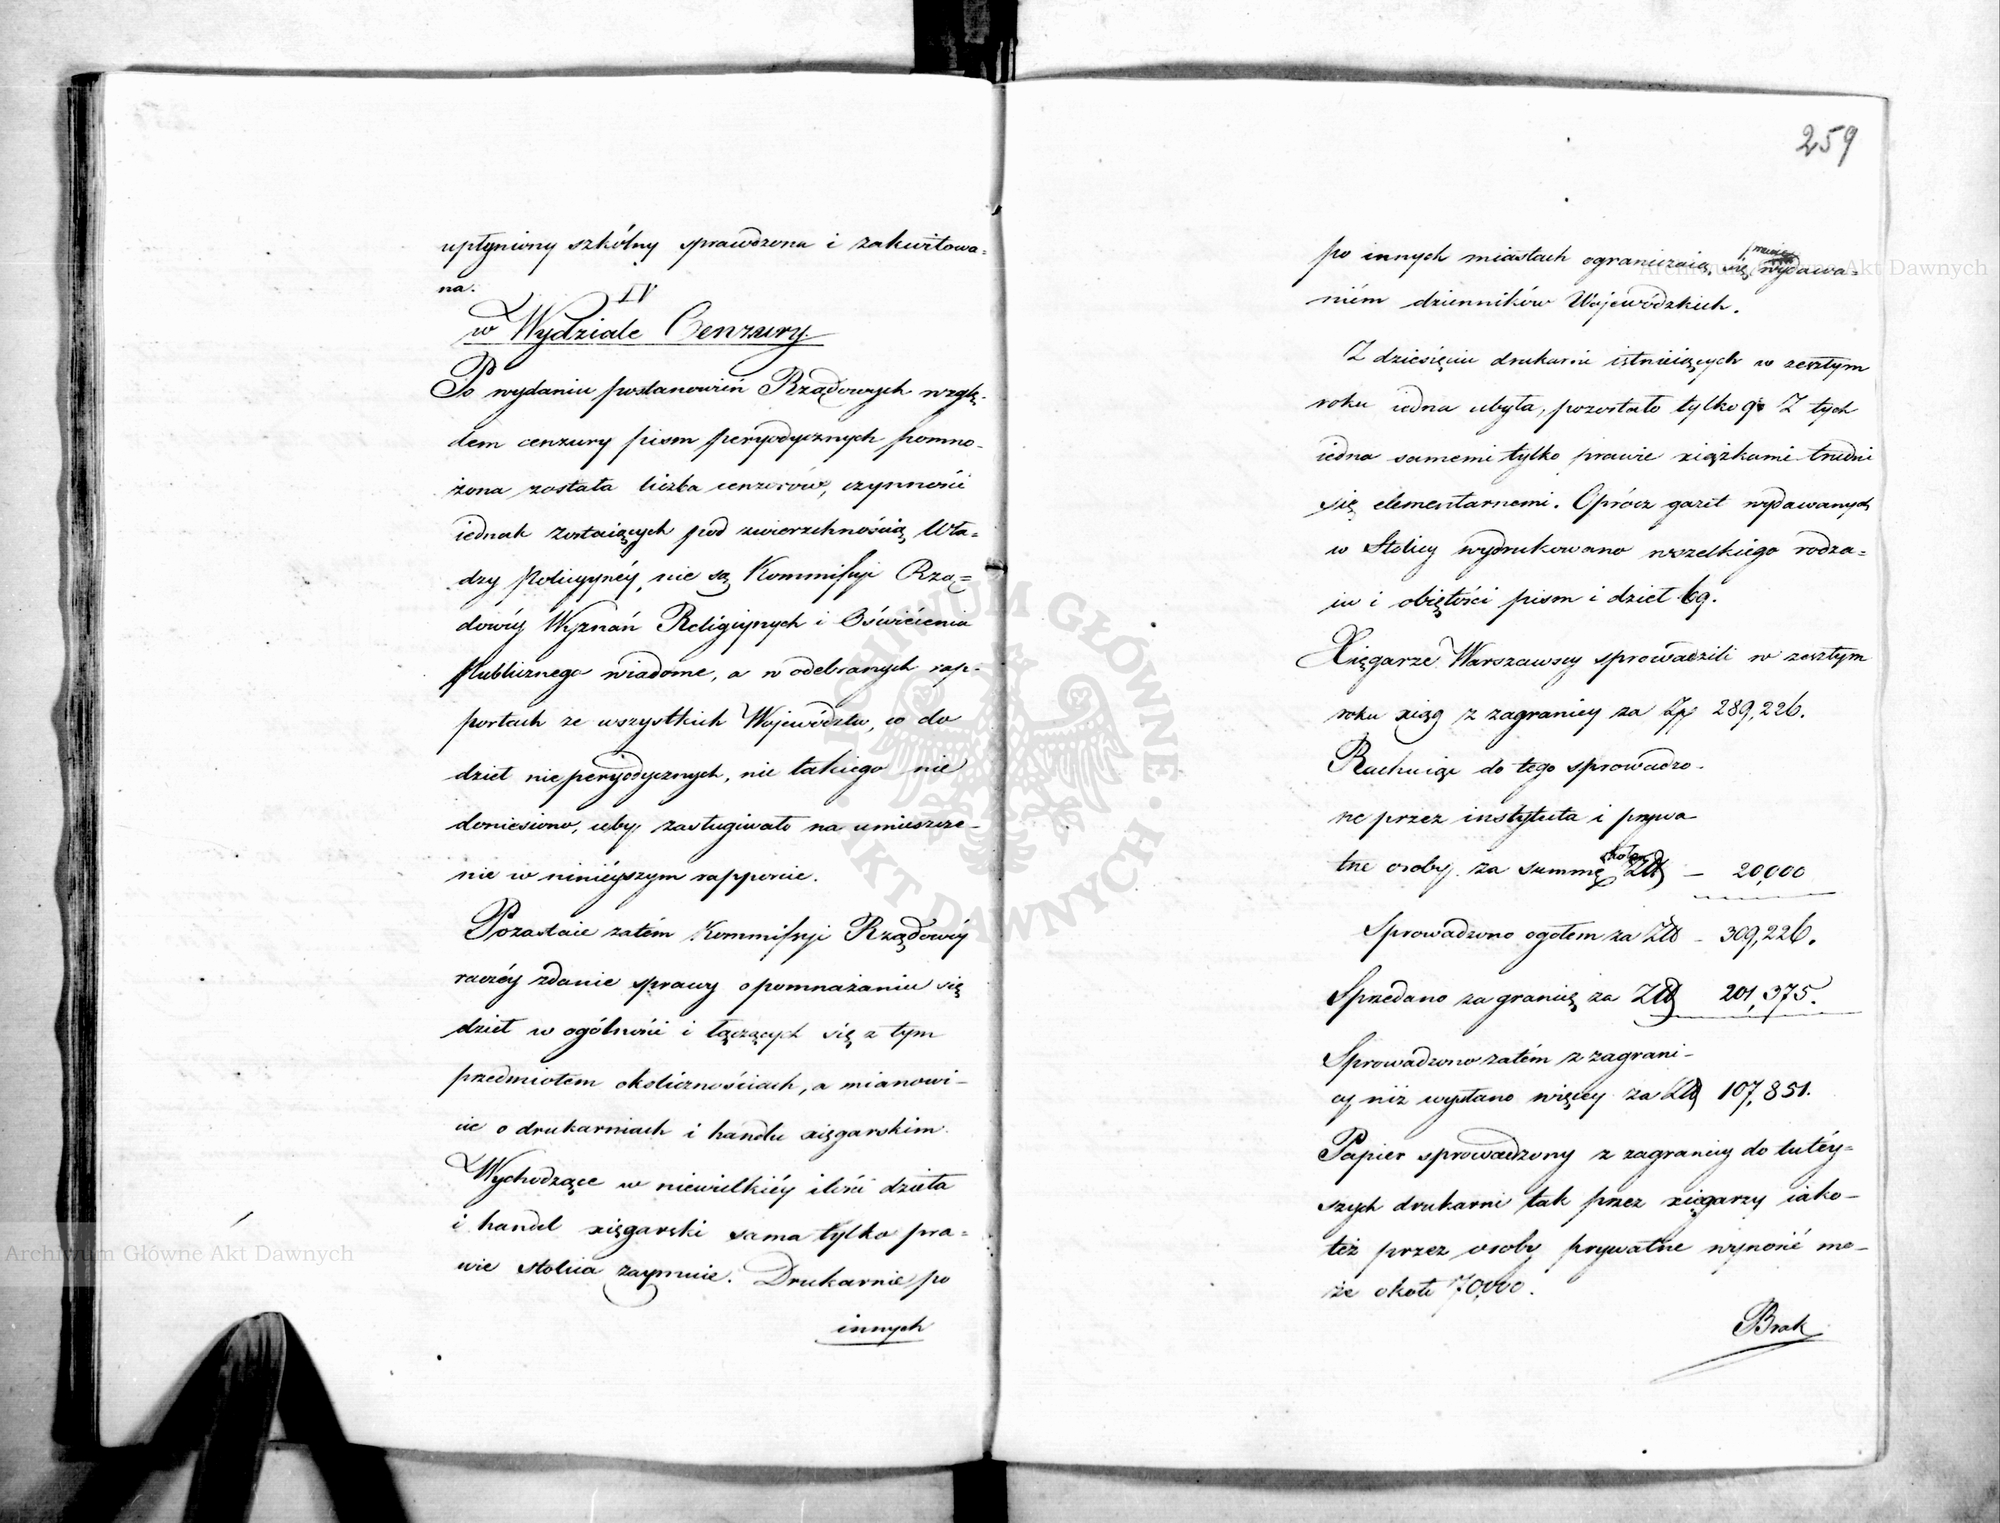 upłyniony szkólny sprawdzona i zakwitowa=
na.
IV
w Wydziale Cenzury.
Po wydaniu postanowień Rządowych wzglę-
dem cenzury pism peryodycznych pomno-
żona została liczba cenzorów, czynności
iednak zostaiących pod zwierzchnością Wła=
dzy Policyynéy, nie są Kommissyi Rzą=
dowéy Wyznań Religiynych i Oświécenia
Publicznego wiadome, a w odebranych rap-
portach ze wszystkich Województw, co do
dzieł nieperyodycznych, nic takiego nie
doniesiono, coby zasługiwało na umieszcze-
nie w ninieyszym rapporcie.
Pozostaie zatém Kommissyi Rządowéy
raczéy zdanie sprawy o pomnażaniu się
dzieł w ogólności i łączących się z tym
przedmiotem okolicznościach, a mianowi-
cie o drukarniach i handlu xięgarskim.
Wychodzące w niewielkiéy ilości dzieła
i handel xięgarski sama tylko pra=
wie stolica zaymuie. Drukarnie po
innych
259
po innych miastach ograniczaią się wydawa=
niém dzienników Wojewódzkich.
Z dziesięciu drukarń istnieiących w zeszłym
roku iedna ubyła, pozostało tylko 9. Z tych
iedna samemi tylko prawie xiążkami trudni
się elementarnemi. Oprócz gazet wydawanych
w Stolicy wydrukowano wszelkiego rodza=
iu i obiętości pism i dzieł 69.
Xięgarze Warszawscy sprowadzili w zeszłym
roku xiąg z zagranicy za Zp 289,226.
Rachuiąc do tego sprowadzo-
ne przez instytuta i prywa
tne osoby za summę około Złl — 20,000
Sprowadzono ogółem za Złl — 309,226.
Sprzedano za granicę za Złl 201,375.
Sprowadzono zatém z zagrani-
cy niż wysłano więcey za Złl 107,851.
Papier sprowadzony z zagranicy do tutéy=
szych drukarni tak przez xięgarzy iako-
też przez osoby prywatne wynosić mo-
że około 70,000.
Brak
Archiwum Główne Akt Dawnych
Archiwum Główne Akt Dawnych
ARCHIWUM GŁÓWNE · AKT DAWNYCH ·